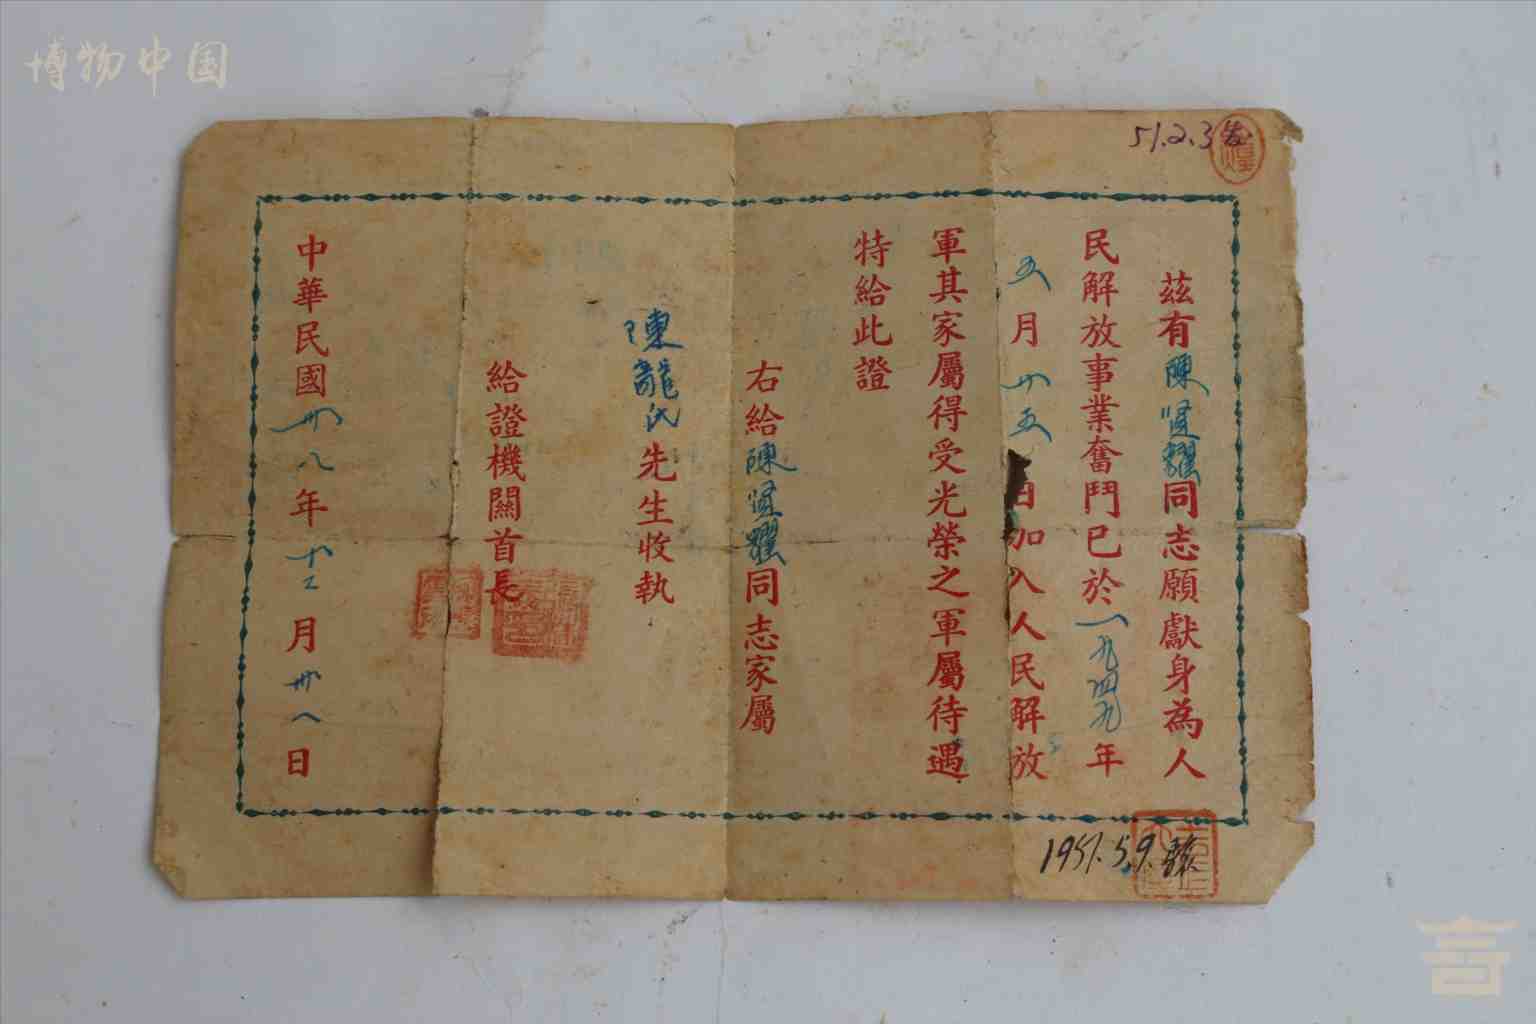 博物中国
51.2.3发
茲有陳贤耀同志願獻身為人
民解放事業奮鬥已於一九四九年
五月廿五日加入人民解放
軍其家屬得受光榮之軍屬待遇
特給此證
右給陳贤耀同志家屬
陳龍氏先生收執
給證機關首長
中華民國卅八年十二月廿八日
1951.5.9.
言